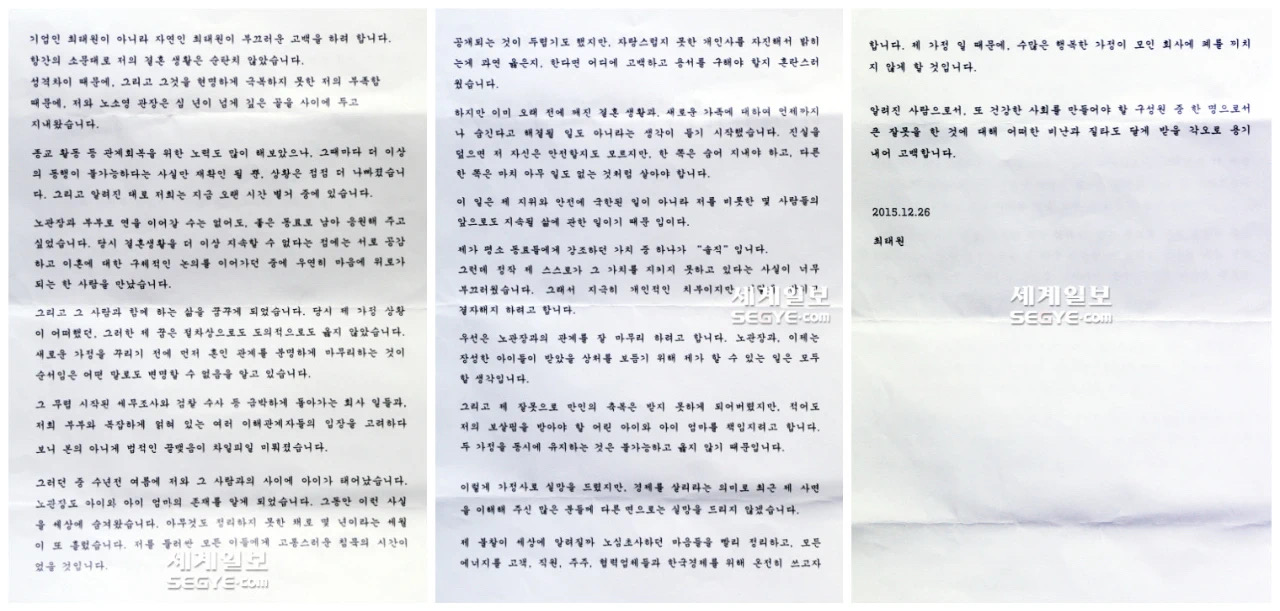 기업인 최태원이 아니라 자연인 최태원이 부끄러운 고백을 하려 합니다.
항간의 소문대로 저의 결혼 생활은 순탄치 않았습니다.
성격차이 때문에, 그리고 그것을 현명하게 극복하지 못한 저의 부족함
때문에, 저와 노소영 관장은 십 년이 넘게 깊은 골을 사이에 두고
지내왔습니다.
종교 활동 등 관계회복을 위한 노력도 많이 해보았으나, 그때마다 더 이상
의 동행이 불가능하다는 사실만 재확인 될 뿐, 상황은 점점 더 나빠졌습니
다. 그리고 알려진 대로 저희는 지금 오랜 시간 별거 중에 있습니다.
노관장과 부부로 연을 이어갈 수는 없어도, 좋은 동료로 남아 응원해 주고
싶었습니다. 당시 결혼생활을 더 이상 지속할 수 없다는 점에는 서로 공감
하고 이혼에 대한 구체적인 논의를 이어가던 중에 우연히 마음에 위로가
되는 한 사람을 만났습니다.
그리고 그 사람과 함께 하는 삶을 꿈꾸게 되었습니다. 당시 제 가정 상황
이 어떠했던, 그러한 제 꿈은 절차상으로도 도의적으로도 옳지 않았습니다.
새로운 가정을 꾸리기 전에 먼저 혼인 관계를 분명하게 마무리하는 것이
순서임은 어떤 말로도 변명할 수 없음을 알고 있습니다.
그 무렵 시작된 세무조사와 검찰 수사 등 급박하게 돌아가는 회사 일들과,
저희 부부와 복잡하게 얽혀 있는 여러 이해관계자들의 입장을 고려하다
보니 본의 아니게 법적인 끝맺음이 차일피일 미뤄졌습니다.
그러던 중 수년전 여름에 저와 그 사람과의 사이에 아이가 태어났습니다.
노관장도 아이와 아이 엄마의 존재를 알게 되었습니다. 그동안 이런 사실
을 세상에 숨겨왔습니다. 아무것도 정리하지 못한 채로 몇 년이라는 세월
이 또 흘렀습니다. 저를 둘러싼 모든 이들에게 고통스러운 침묵의 시간이
었을 것입니다.
세계일보
SEGYE.com
공개되는 것이 두렵기도 했지만, 자랑스럽지 못한 개인사를 자진해서 밝히
는게 과연 옳은지, 한다면 어디에 고백하고 용서를 구해야 할지 혼란스러
웠습니다.
하지만 이미 오래 전에 깨진 결혼 생활과, 새로운 가족에 대하여 언제까지
나 숨긴다고 해결될 일도 아니라는 생각이 들기 시작했습니다. 진실을
덮으면 저 자신은 안전할지도 모르지만, 한 쪽은 숨어 지내야 하고, 다른
한 쪽은 마치 아무 일도 없는 것처럼 살아야 합니다.
이 일은 제 지위와 안전에 국한된 일이 아니라 저를 비롯한 몇 사람들의
앞으로도 지속될 삶에 관한 일이기 때문 입니다.
제가 평소 동료들에게 강조하던 가치 중 하나가 "솔직"입니다.
그런데 정작 제 스스로가 그 가치를 지키지 못하고 있다는 사실이 너무
부끄러웠습니다. 그래서 지극히 개인적인 치부이지만
결자해지 하려고 합니다.
세계일보
SEGYE.com
우선은 노관장과의 관계를 잘 마무리 하려고 합니다. 노관장과, 이제는
장성한 아이들이 받았을 상처를 보듬기 위해 제가 할 수 있는 일은 모두
할 생각입니다.
그리고 제 잘못으로 만인의 축복은 받지 못하게 되어버렸지만, 적어도
저의 보살핌을 받아야 할 어린 아이와 아이 엄마를 책임지려고 합니다.
두 가정을 동시에 유지하는 것은 불가능하고 옳지 않기 때문입니다.
이렇게 가정사로 실망을 드렸지만, 경제를 살리라는 의미로 최근 제 사면
을 이해해 주신 많은 분들께 다른 면으로는 실망을 드리지 않겠습니다.
제 불찰이 세상에 알려질까 노심초사하던 마음들을 빨리 정리하고, 모든
에너지를 고객, 직원, 주주, 협력업체들과 한국경제를 위해 온전히 쓰고자
합니다. 제 가정 일 때문에, 수많은 행복한 가정이 모인 회사에 폐를 끼치
지 않게 할 것입니다.
알려진 사람으로서, 또 건강한 사회를 만들어야 할 구성원 중 한 명으로서
큰 잘못을 한 것에 대해 어떠한 비난과 질타도 달게 받을 각오로 용기
내어 고백합니다.
2015.12.26
최태원
세계일보
SEGYE.com